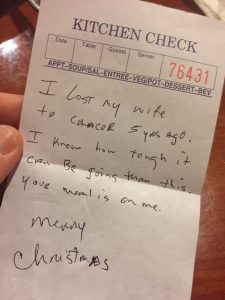 KITCHEN CHECK
Date Table Guests Server
76431
APPT-SOUP/SAL-ENTREE-VEG/POT-DESSERT-BEV
I Lost my wife
to CANCER 5 yrs ago.
I know how tough it
can Be going thru this.
your meal is on me.
Merry
Christmas